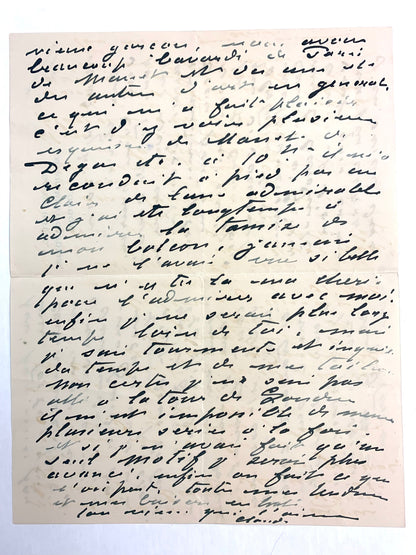 vieux garçon, nous avons
beaucoup bavardé de Paris
de Manet et des uns et
des autres d'art en général,
ce qui m'a fait plaisir
c'est d'y voir plusieurs
esquisses de Manet de
Degas etc à 10 h il m'a
reconduit à pied par un
clair de lune admirable
et j'ai été longtemps à
admirer la tamise de
mon balcon, jamais
je ne l'avais vue si belle
que n'y es tu là ma chérie
pour l'admirer avec moi.
enfin je ne serai plus long
temps loin de toi, mais
je suis tourmenté et inquiet
du temps et de mes toiles.
non certes je ne suis pas
allé à la tour de Londres
il m'est impossible de mener
plusieurs séries à la fois
et si je n'avais fait qu'un
seul motif j'aurais plus
avancé, enfin on fait ce que
l'on peut. toute ma tendresse
et mes baisers
ton vieux qui t'aime
Claude